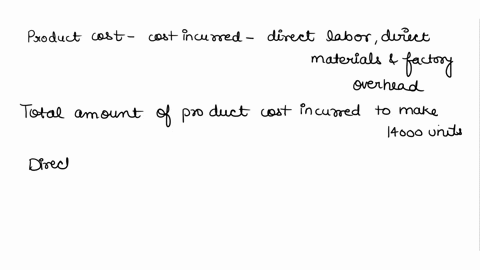 Product cost - cost incurred - direct labor, direct
materials & factory
overhead
Total amount of product cost incurred to make
14000 units
Direc